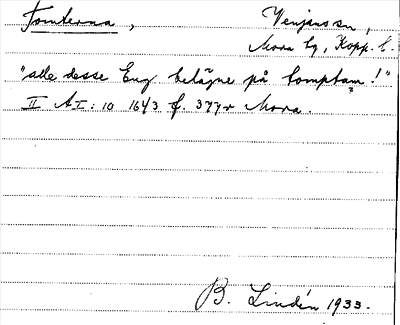 Tomterna, Venjans sn,
Mora tg, Kopp. l.
"alle desse Eng belägne på tomptam!"
II AI: 10 1643 f. 377v Mora.
B. Lindén 1933.